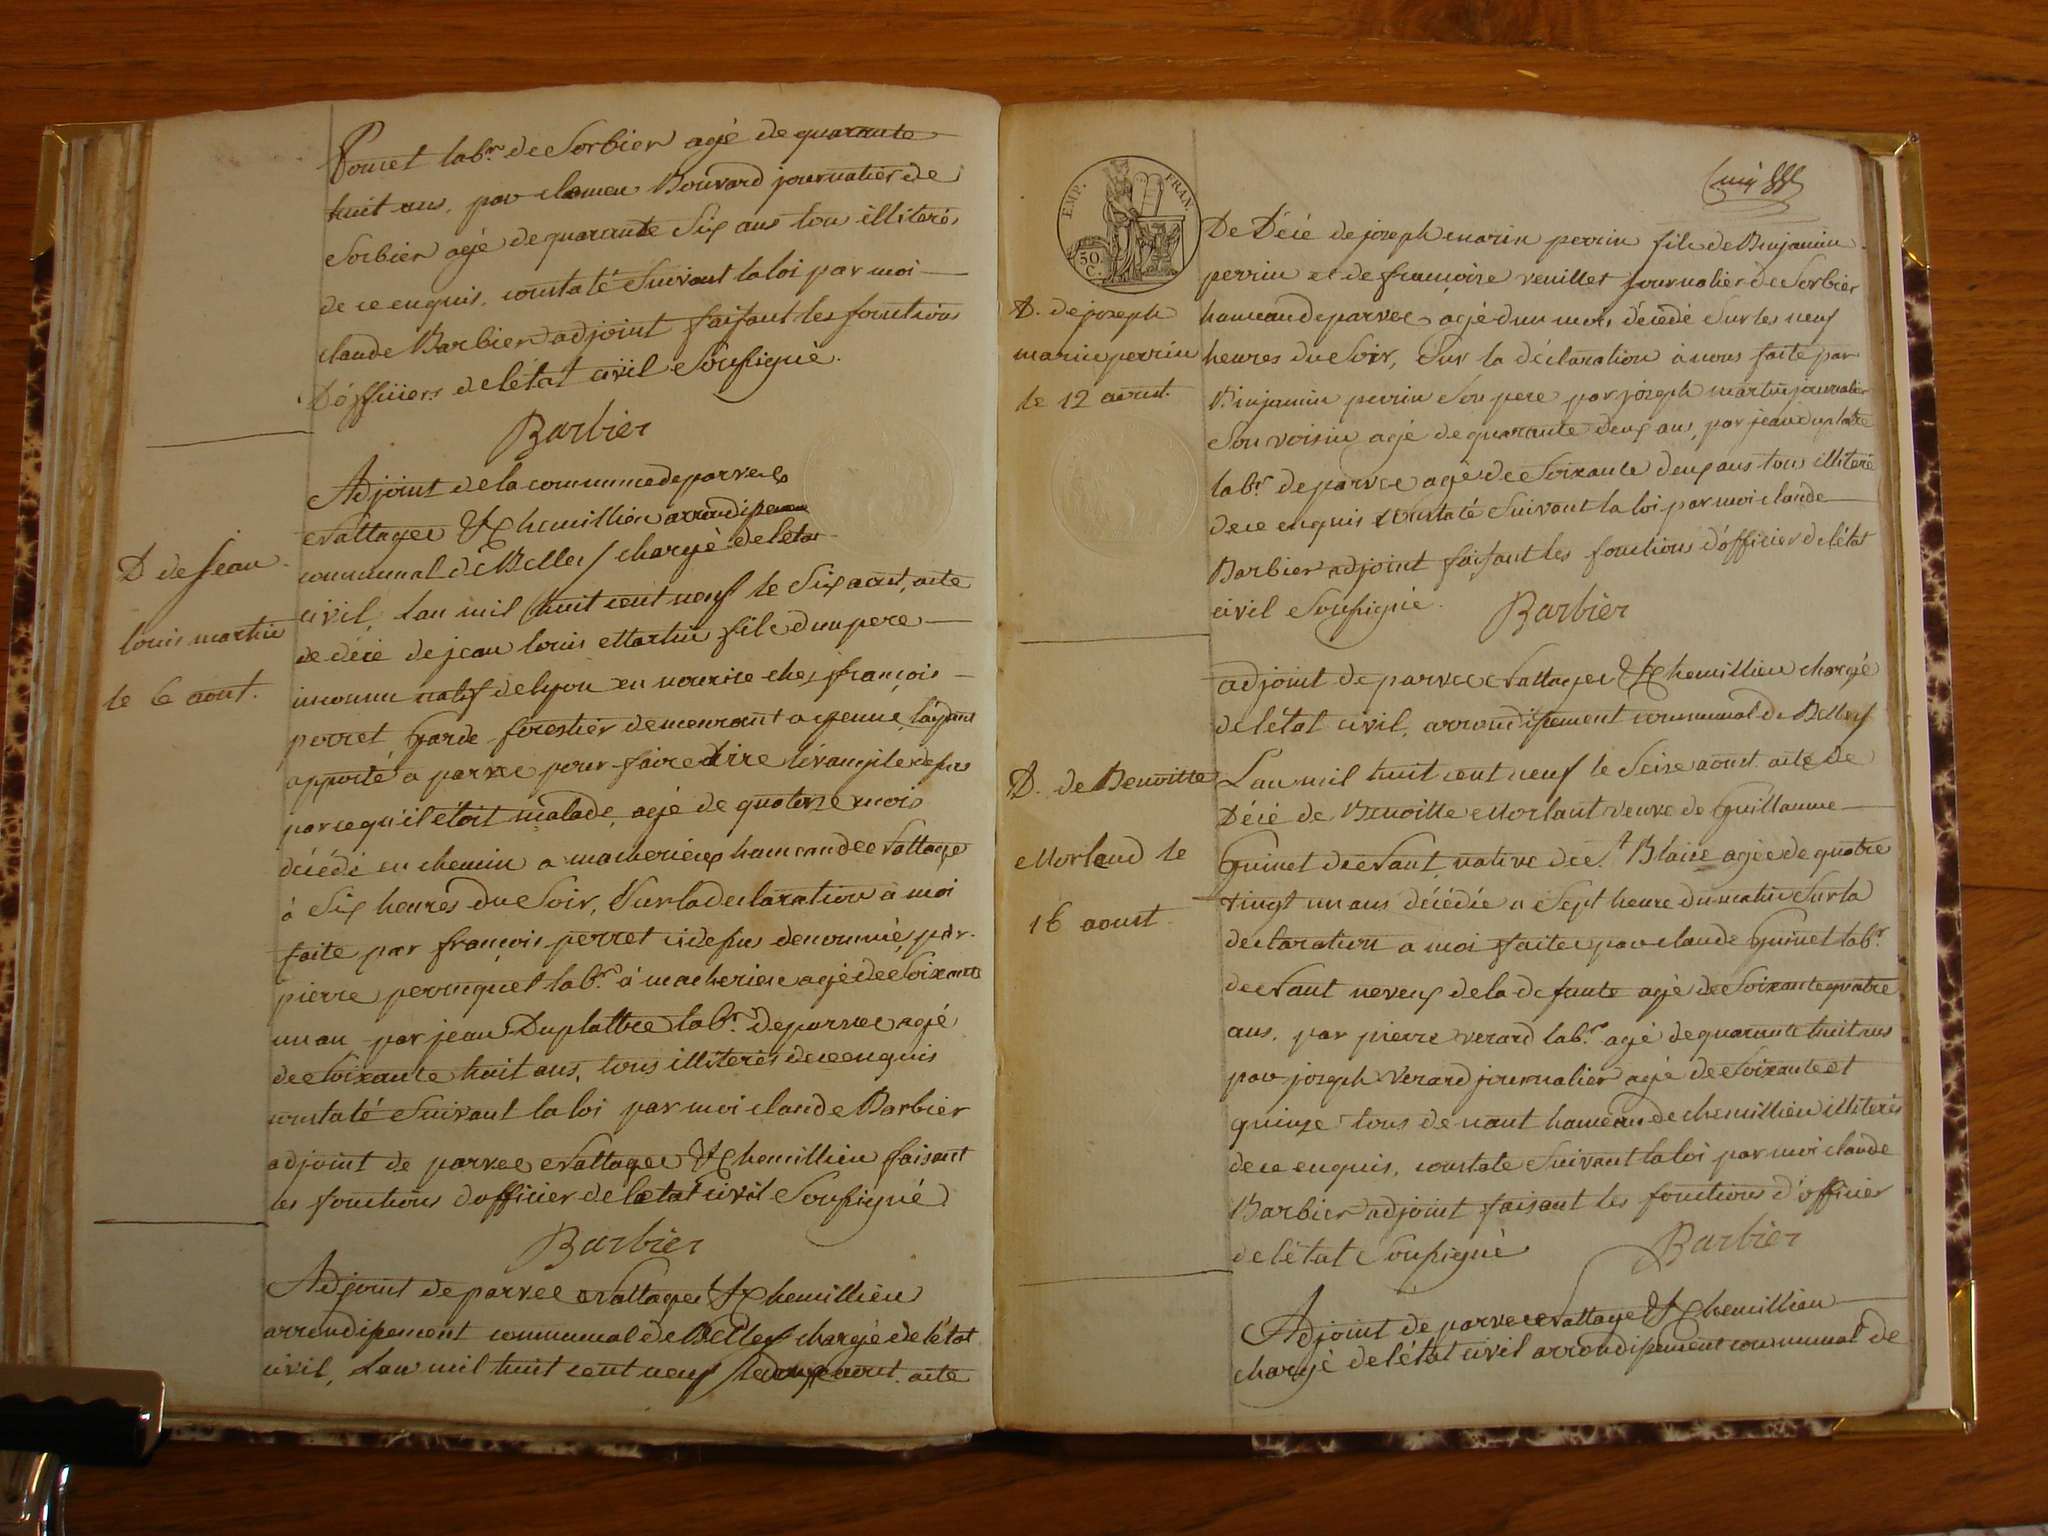 ponet labr. de Sorbier agé de quarante
huit ans, par clemen Bouvard journalier de
Sorbier agé de quarante Six ans tou illiterés
de ce enquis, constaté Suivant la loi par moi
claude Barbier adjoint faisant les fonctions
D'officiers de l'état civil Soussigné.
Barbier
D de Jean
louis martin
le 6 aout.
Adjoint de la commune de parves
Nattages & Chemillieu arrondissement
communal de Belley chargé de l'état
civil, Lan mil huit cent neuf le Six aout, acte
de décé de jean louis Martin fils d'un pere
inconnu natif de lyon en nourice chez françois
perret, garde forestier demeurant a yenne, l'ayant
apporté a parve pour faire dire l'évangile dessus
parcequ'il étoit malade, agé de quatorze mois
décédé en chemin a macherieux hameau de Nattage
à Six heures du Soir, Sur la declaration à moi
faite par françois perret cidessus denommé, par
pierre peronquet labr. à macherieu agé de Soixante
un an par jean Duplattre labr. de parves agé
de Soixante huit ans, tous illiterés de ce enquis
constaté Suivant la loi par moi claude Barbier
adjoint de parves Nattages & Chemillieu faisant
les fonctions d'officier de letat civil Soussigné
Barbier
Adjoint de parves Nattages & Chemillieu
arrondissement communal de Belley chargé de l'état
civil, Lan mil huit cent neuf le douze aout. acte
EMP. FRAN.
50
C.
D. de joseph
marin perrin
le 12 aoust.
De Décé de joseph marin perrin fils de Binjamin
perrin et de françoise veuillet journalier de Sorbier
hameau de parves agé d'un mois, décédé Sur les neuf
heures du Soir, Sur la déclaration à nous faite par
Binjamin perrin Son pere par joseph martin journalier
Son voisin agé de quarante deux ans, par jean duplatre
labr. de parves agé de Soixante deux ans tous illiteré
de ce enquis constaté Suivant la loi par moi claude
Barbier adjoint faisant les fonctions d'officier de l'état
civil Soussigné.
Barbier
D. de Benoitte
Morland le
16 aoust
adjoint de parves Nattages & Chemillieu chargé
de l'état civil, arrondissement communal de Belley
Lan mil huit cent neuf le Seize aoust acte de
Décé de Benoitte Morlant veuve de Guillaume
Guinet de Nant, native de St. Blaise agée de quatre
vingt un ans décédée a Sept heure du matin Sur la
declaration a moi faite par claude Guinet labr.
de Nant neveux de la defunte agé de Soixante quatre
ans, par pierre verard labr. agé de quarante huit ans
par joseph verard journalier agé de Soixante et
quinze tous de nant hameau de chemillieu illiterés
de ce enquis, constate Suivant la loi par moi claude
Barbier adjoint faisant les fonctions d'officier
de l'état Soussigné
Barbier
Adjoint de parves Nattage & Chemillieu
chargé de l'état civil arrondissement communal de